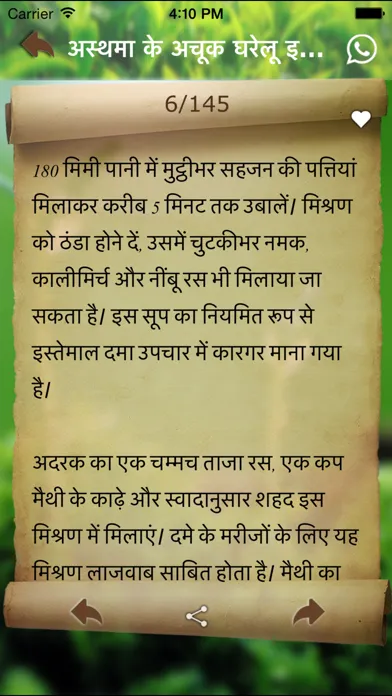 Carrier 4:10 PM
अस्थमा के अचूक घरेलू इ...
6/145
180 मिमी पानी में मुट्ठीभर सहजन की पत्तियां
मिलाकर करीब 5 मिनट तक उबालें। मिश्रण
को ठंडा होने दें, उसमें चुटकीभर नमक,
कालीमिर्च और नींबू रस भी मिलाया जा
सकता है। इस सूप का नियमित रूप से
इस्तेमाल दमा उपचार में कारगर माना गया
है।
अदरक का एक चम्मच ताजा रस, एक कप
मैथी के काढ़े और स्वादानुसार शहद इस
मिश्रण में मिलाएं। दमे के मरीजों के लिए यह
मिश्रण लाजवाब साबित होता है। मैथी का